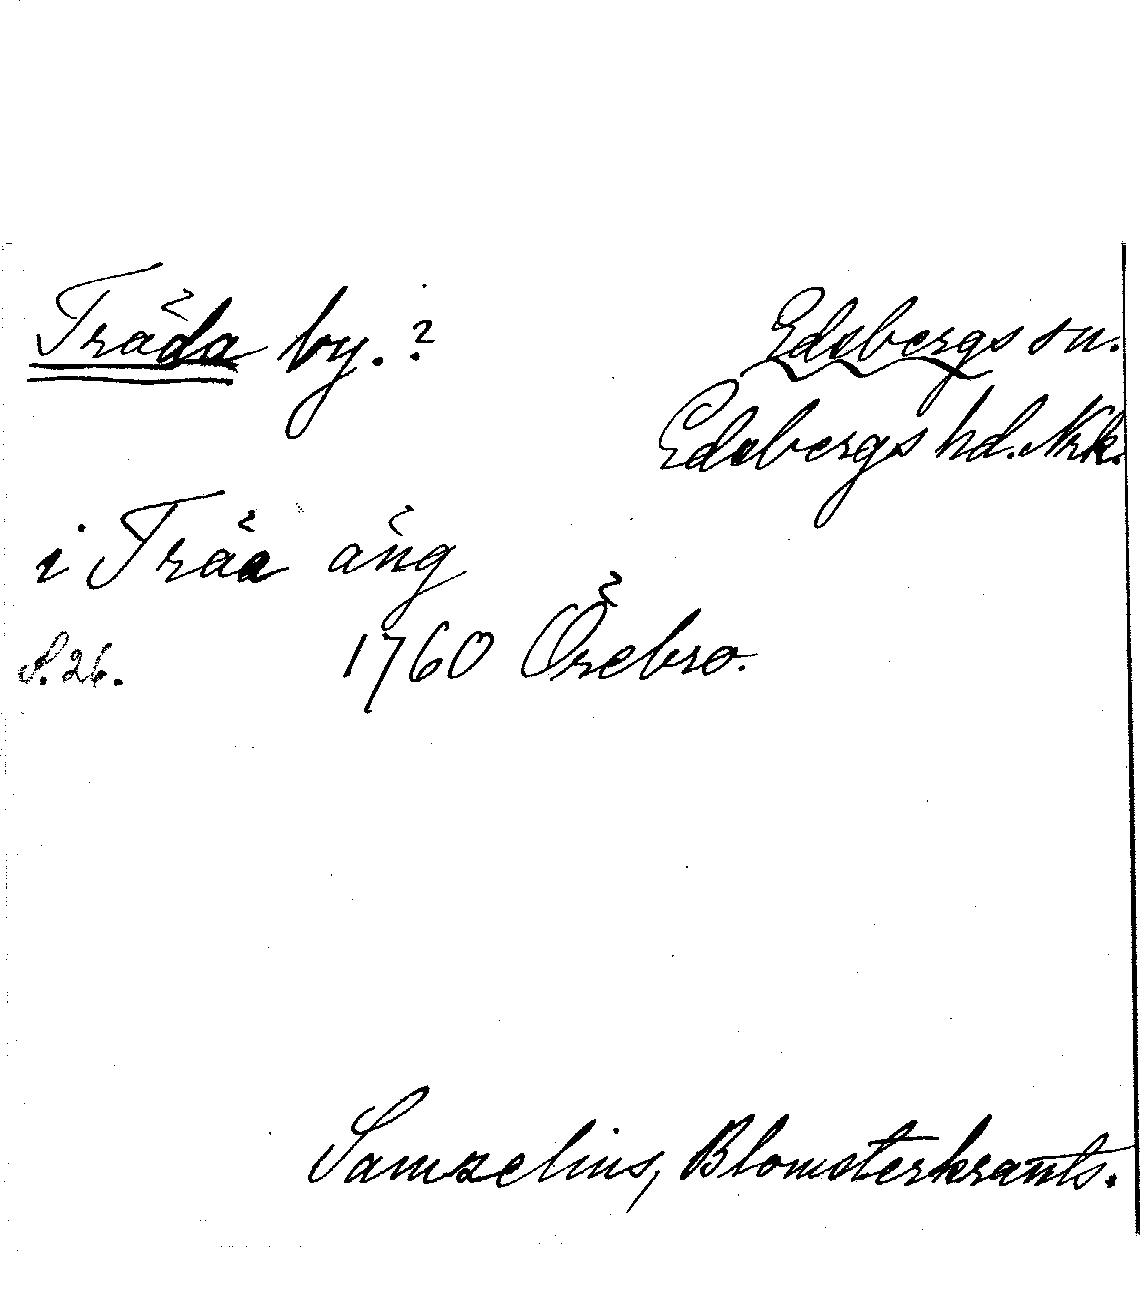 Träda by.?
Edsbergs sn.
Edsbergs hd. Nrk.
i Träa äng
S. 26. 1760 Örebro.
Samzelius, Blomsterkrants.